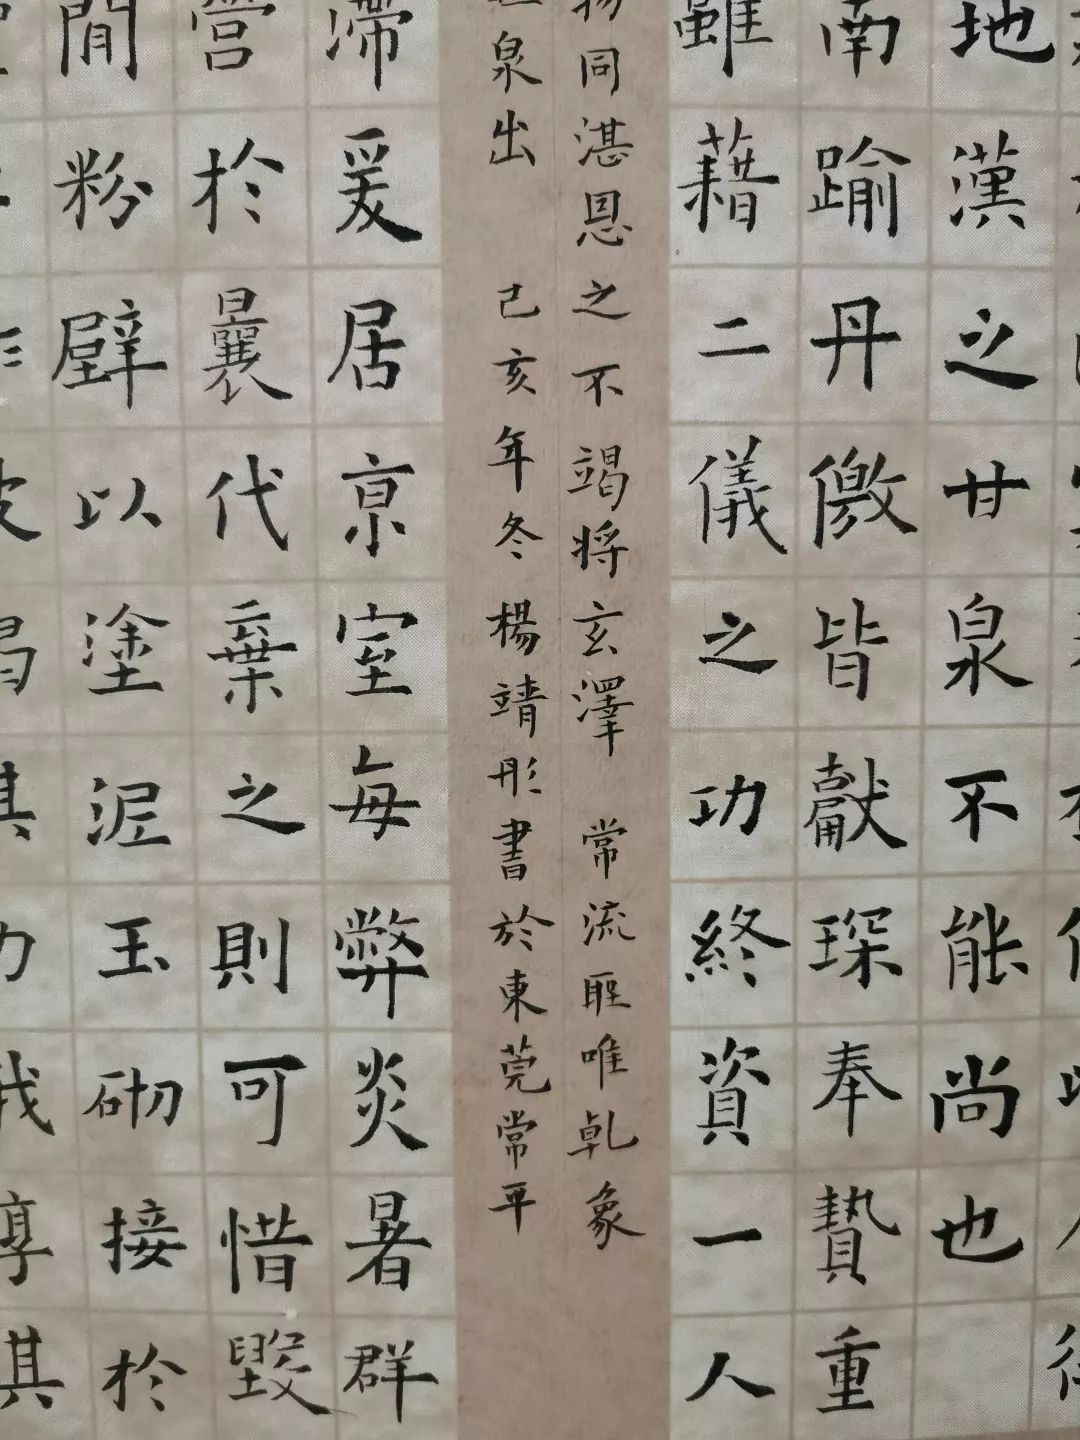 地漢之甘泉不能尚也
南踰丹儌皆獻琛奉贄重
雖藉二儀之功終資一人
同湛恩之不竭將玄澤常流匪唯乹象
泉出 己亥年冬楊靖彤書於東莞常平
滯爰居京室每弊炎暑群
營於曩代棄之則可惜毀
閒粉壁以塗泥玉砌接於